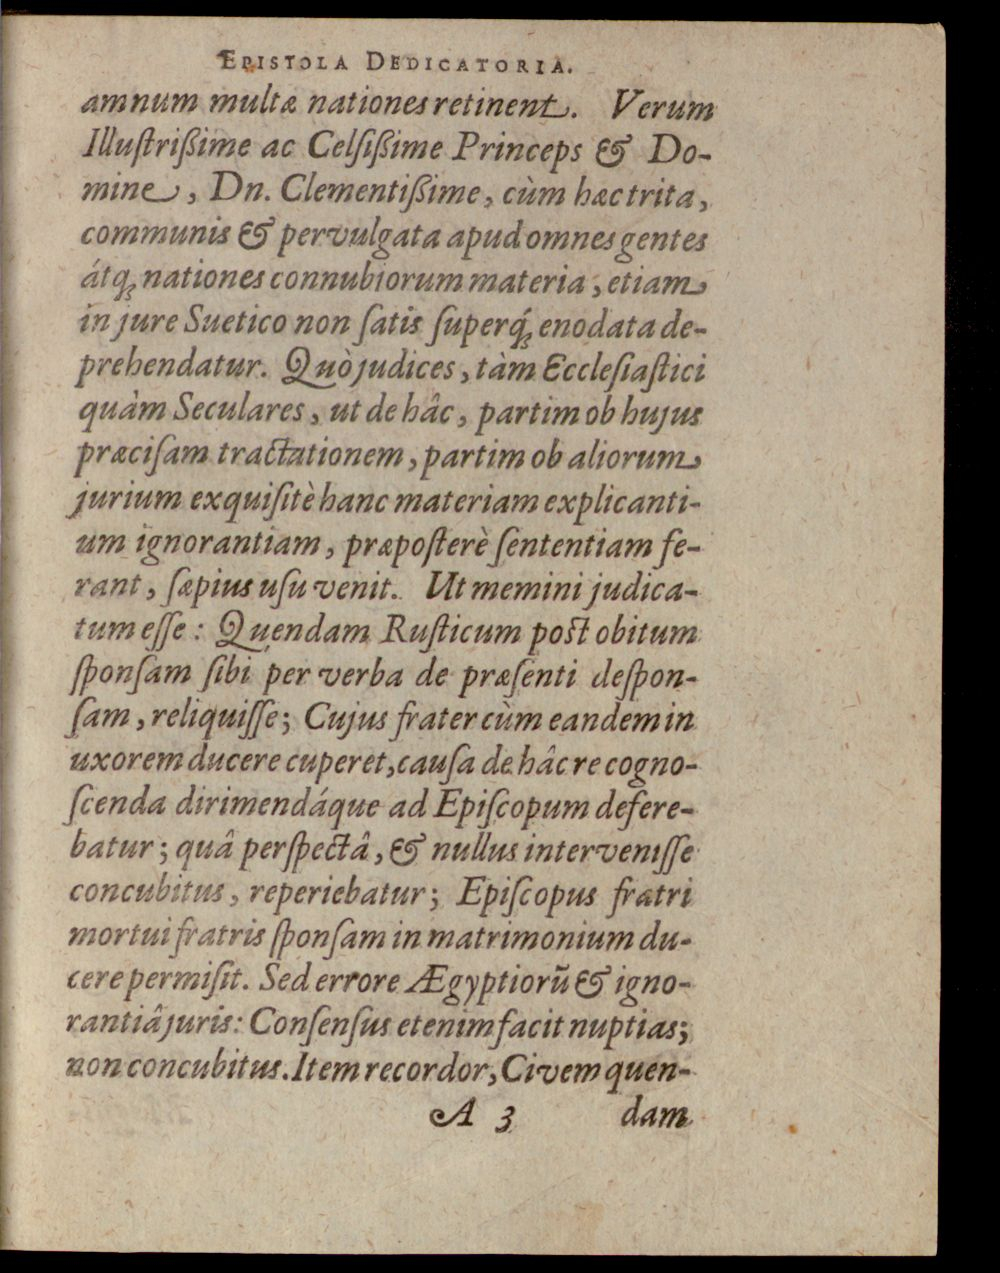 EPISTOLA DEDICATORIA.
amnum multæ nationes retinent. Verum
Illuſtrißime ac Celſißime Princeps & Do-
mine, Dn. Clementißime, cùm hæc trita,
communis & pervulgata apud omnes gentes
átq́; nationes connubiorum materia, etiam
in jure Suetico non ſatis ſuperq́; enodata de-
prehendatur. Quò judices, tàm Eccleſiaſtici
quàm Seculares, ut de hâc, partim ob hujus
præciſam tractationem, partim ob aliorum
jurium exquiſitè hanc materiam explicanti-
um ignorantiam, præpoſterè ſententiam fe-
rant, ſæpius uſu venit. Ut memini judica-
tum eſſe: Quendam Ruſticum poſt obitum
ſponſam ſibi per verba de præſenti deſpon-
ſam, reliquiſſe; Cujus frater cùm eandem in
uxorem ducere cuperet, cauſa de hâc re cogno-
ſcenda dirimendáque ad Epiſcopum defere-
batur; quâ perſpectâ, & nullus interveniſſe
concubitus, reperiebatur; Epiſcopus fratri
mortui fratris ſponſam in matrimonium du-
cere permiſit. Sed errore Ægyptiorũ & igno-
rantiâ juris: Conſenſus etenim facit nuptias;
non concubitus. Item recordor, Civem quen-
A 3 dam